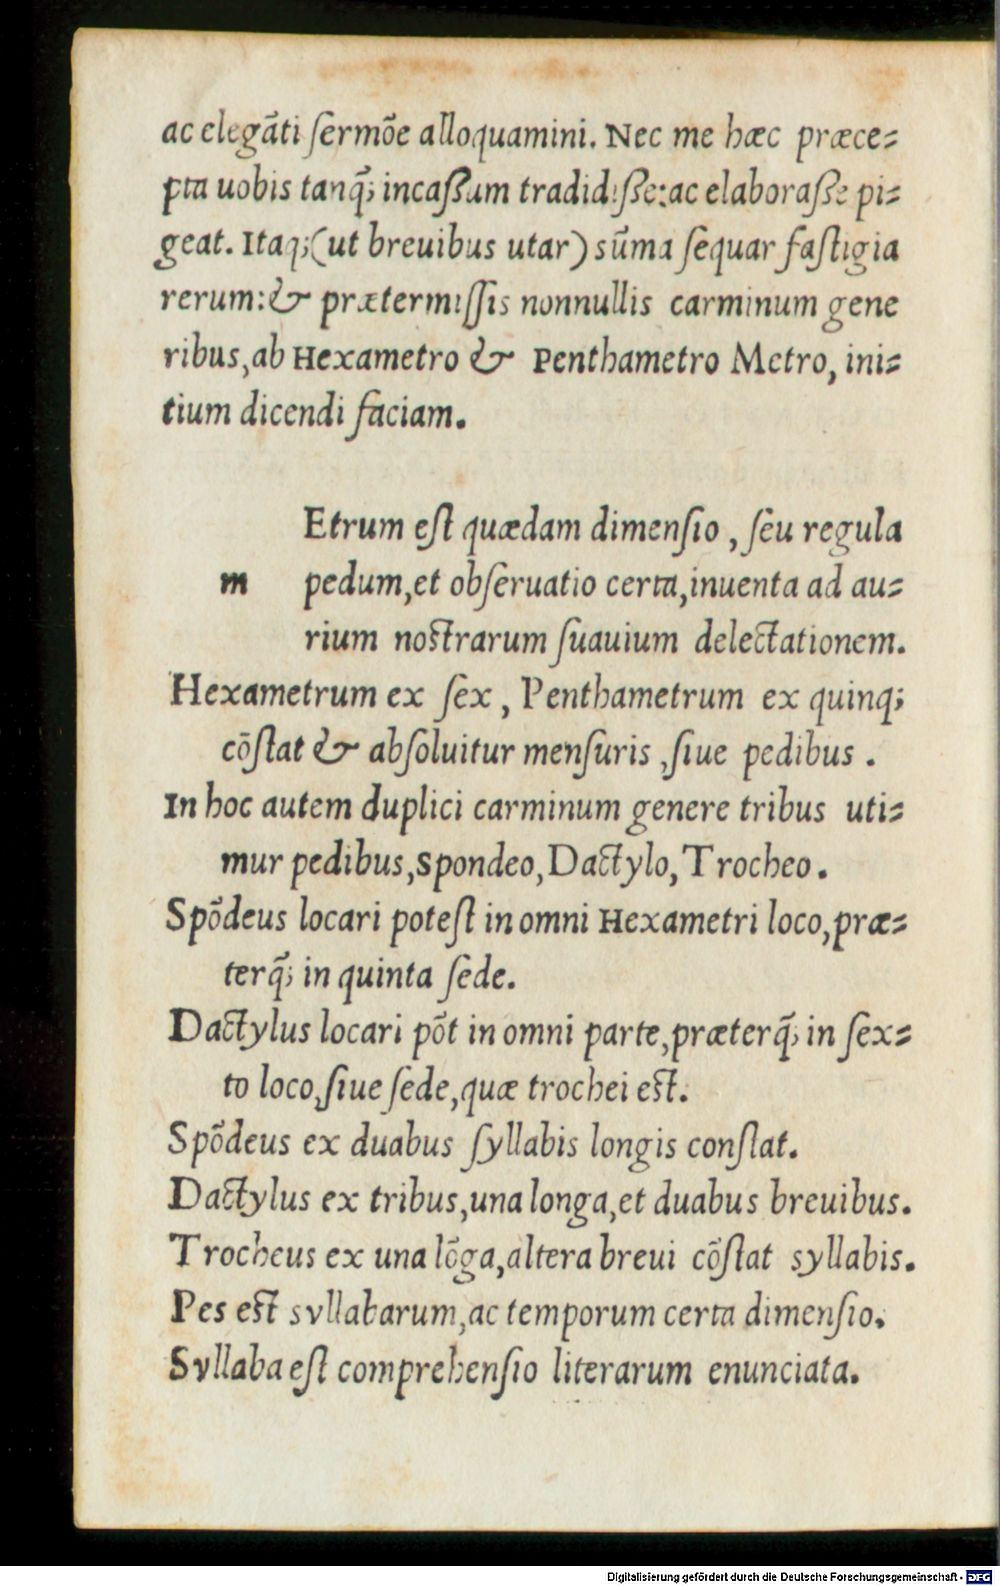 ac elegāti ſermōe alloquamini. Nec me hæc præce⸗
pta uobis tanq̃; incaſſum tradidiſſe:ac elaboraſſe pi⸗
geat. Itaq;(ut breuibus utar) sūma ſequar faſtigia
rerum:& prætermiſſis nonnullis carminum gene
ribus,ab Hexametro & Penthametro Metro, ini⸗
tium dicendi faciam.
Etrum eſt quædam dimenſio , ſeu regula
m pedum,et obſeruatio certa,inuenta ad au⸗
rium noſtrarum ſuauium delectationem.
Hexametrum ex ſex , Penthametrum ex quinq;
cōſtat & abſoluitur menſuris ,ſiue pedibus .
In hoc autem duplici carminum genere tribus uti⸗
mur pedibus,Spondeo,Dactylo,Trocheo.
Spōdeus locari poteſt in omni Hexametri loco,præ⸗
terq̃; in quinta ſede.
Dactylus locari pōt in omni parte,præterq̃; in ſex⸗
to loco,ſiue ſede,quæ trochei eſt.
Spōdeus ex duabus ſyllabis longis conſtat.
Dactylus ex tribus,una longa,et duabus breuibus.
Trocheus ex una lōga,altera breui cōſtat syllabis.
Pes eſt syllabarum,ac temporum certa dimenſio.
Syllaba eſt comprehenſio literarum enunciata.
Digitalisierung gefördert durch die Deutsche Forschungsgemeinschaft - DFG